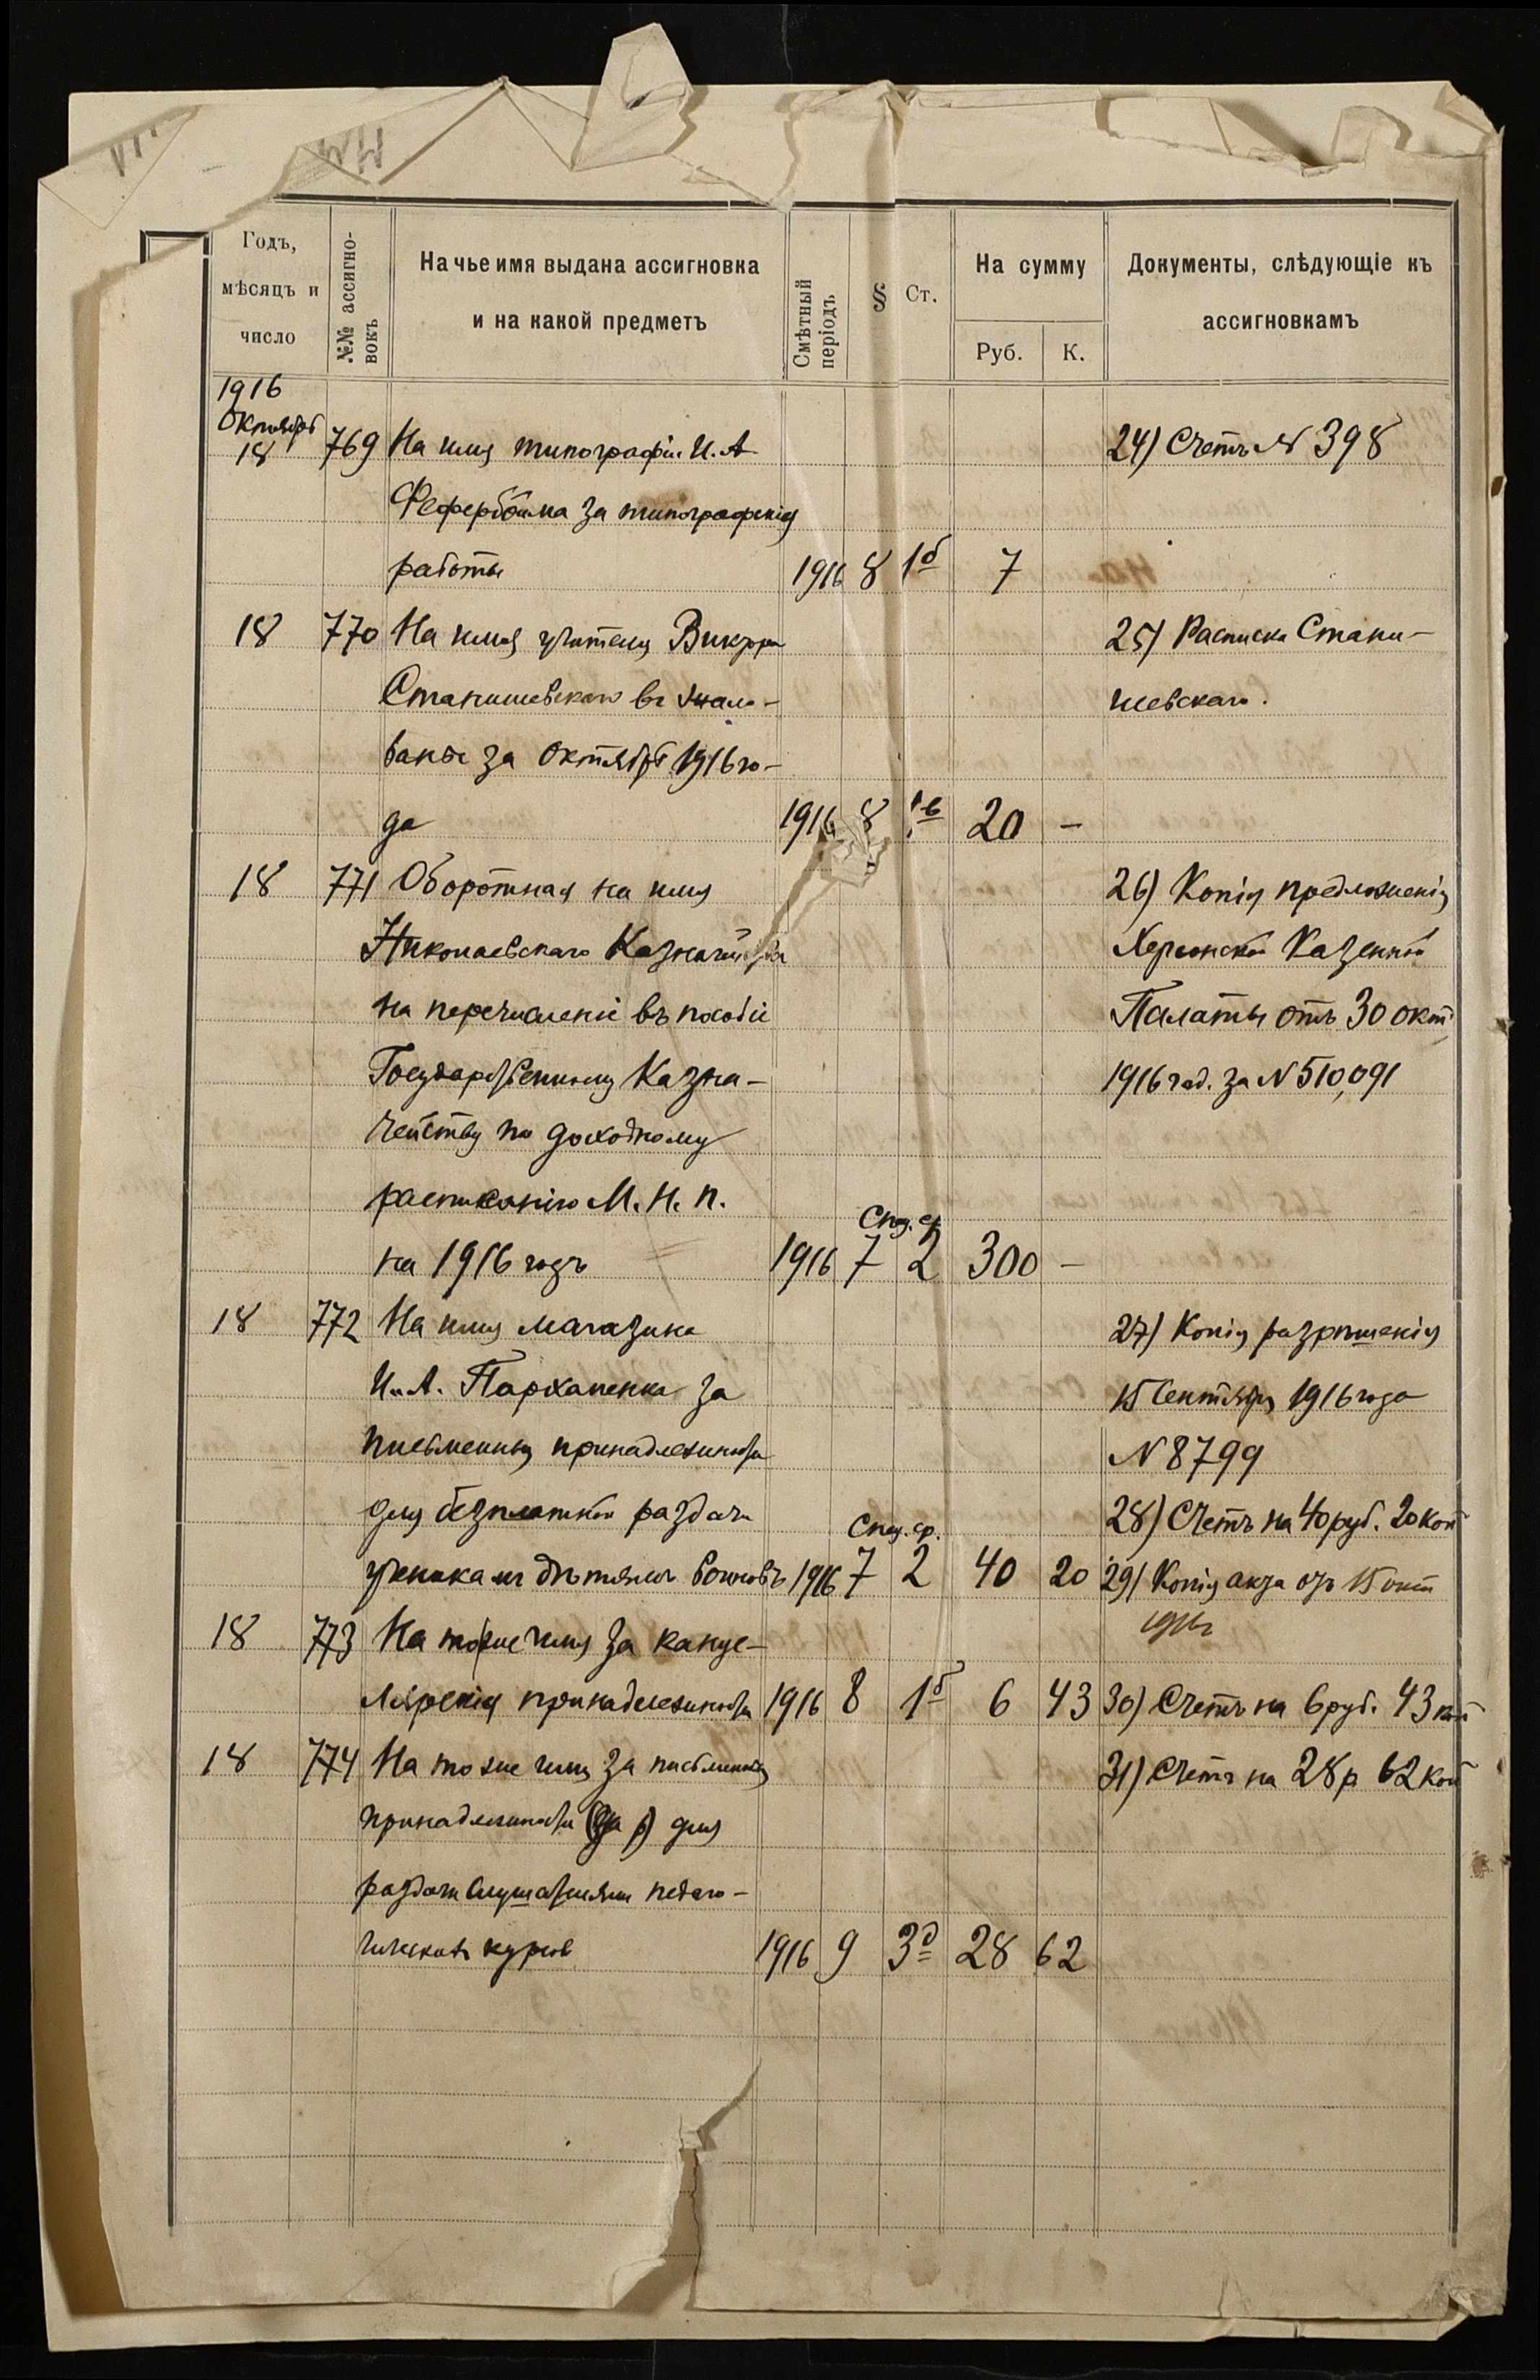 Годъ,
мѣсяцъ и
число
№№ ассигно-
вокъ
На чье имя выдана ассигновка
и на какой предметъ
Смѣтный
періодъ
§
Ст.
На сумму
Руб. К.
Документы, слѣдующіе къ
ассигновкамъ
1916
Октябрь
18 769 На имя типографіи И. А. 24) Счетъ № 398
за типографскія
работы 1916 8 1б 7
18 770 На имя учителя 25) Расписка Стани-
Станишевскаго въ жало- шевскаго.
ванье за Октябрь 1916 го-
да 1916 8 1в 20 –
18 771 Оборотная на имя 26) Копія предложенія
Николаевскаго Казначейства Херсонской Казенной
на перечисленіе въ пособіе Палаты отъ 30 окт.
Государственному Казна- 1916 год. за N 510,091
чейству по доходному
росписанію М. Н. П. Спец. ср.
на 1916 годъ 1916 7 2 300 –
18 772 На имя магазина 27) Копія разрѣшенія
И. А. Пархаменка за 15 Сентября 1916 года
письменныя принадлежности N 8799
для безплатной раздачи Спец. ср. 28) Счетъ на 40 руб. 20 коп
ученикамъ дѣтямъ воиновъ 1916 7 2 40 20 29) Копія акта отъ 15 окт
1916 г
18 773 На то же имя за канце-
лярскія принадлежности 1916 8 1б 6 43 30) Счетъ на 6 руб. 43 коп
18 774 На то же имя за письменныя 31) Счетъ на 28 р 62 коп
принадлежности для
раздачи слушателямъ педаго-
гическихъ курсовъ 1916 9 3д 28 62